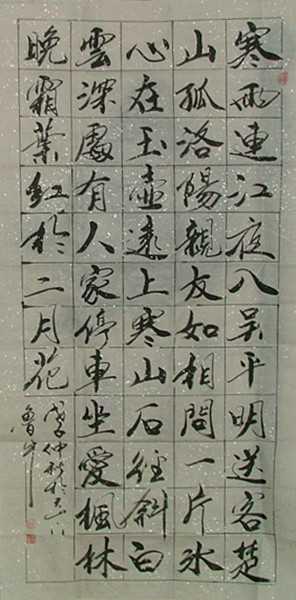 寒雨連江夜入吳平明送客楚
山孤洛陽親友如相問一片冰
心在玉壺遠上寒山石徑斜白
雲深處有人家停車坐愛楓林
晚霜葉紅於二月花
戊子仲秋於
魯